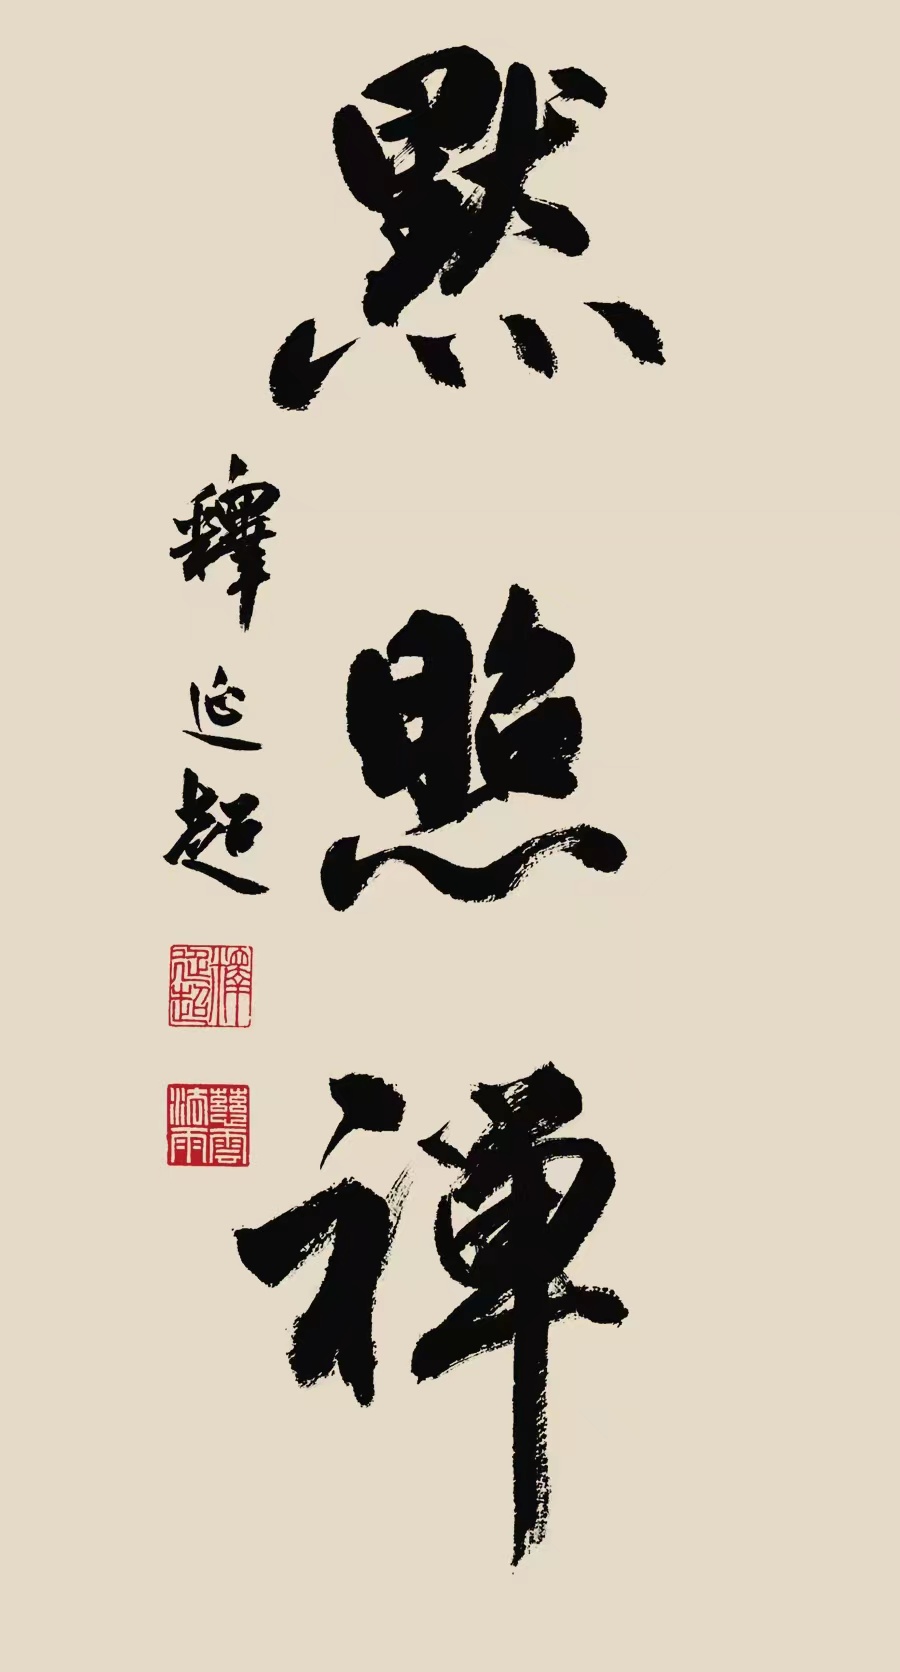 默照禪
釋延超
釋延超
慈雲法雨